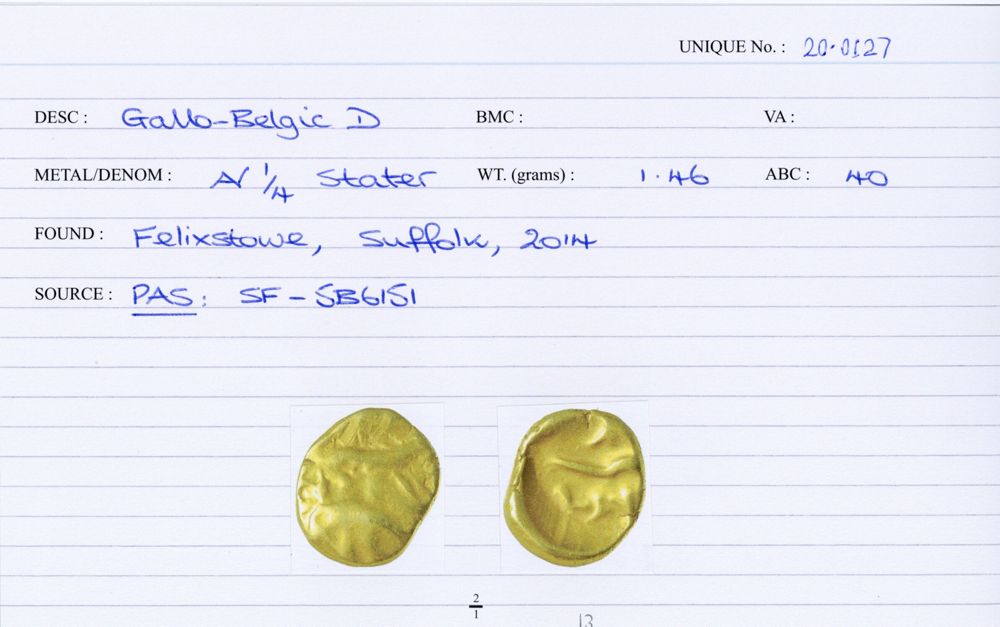 UNIQUE No. : 20.0127
DESC : Gallo-Belgic D BMC : VA :
METAL/DENOM : AV 1/4 Stater WT. (grams) : 1.46 ABC : 40
FOUND : Felixstowe, Suffolk, 2014
SOURCE : PAS: SF-5B6151
2/1
13